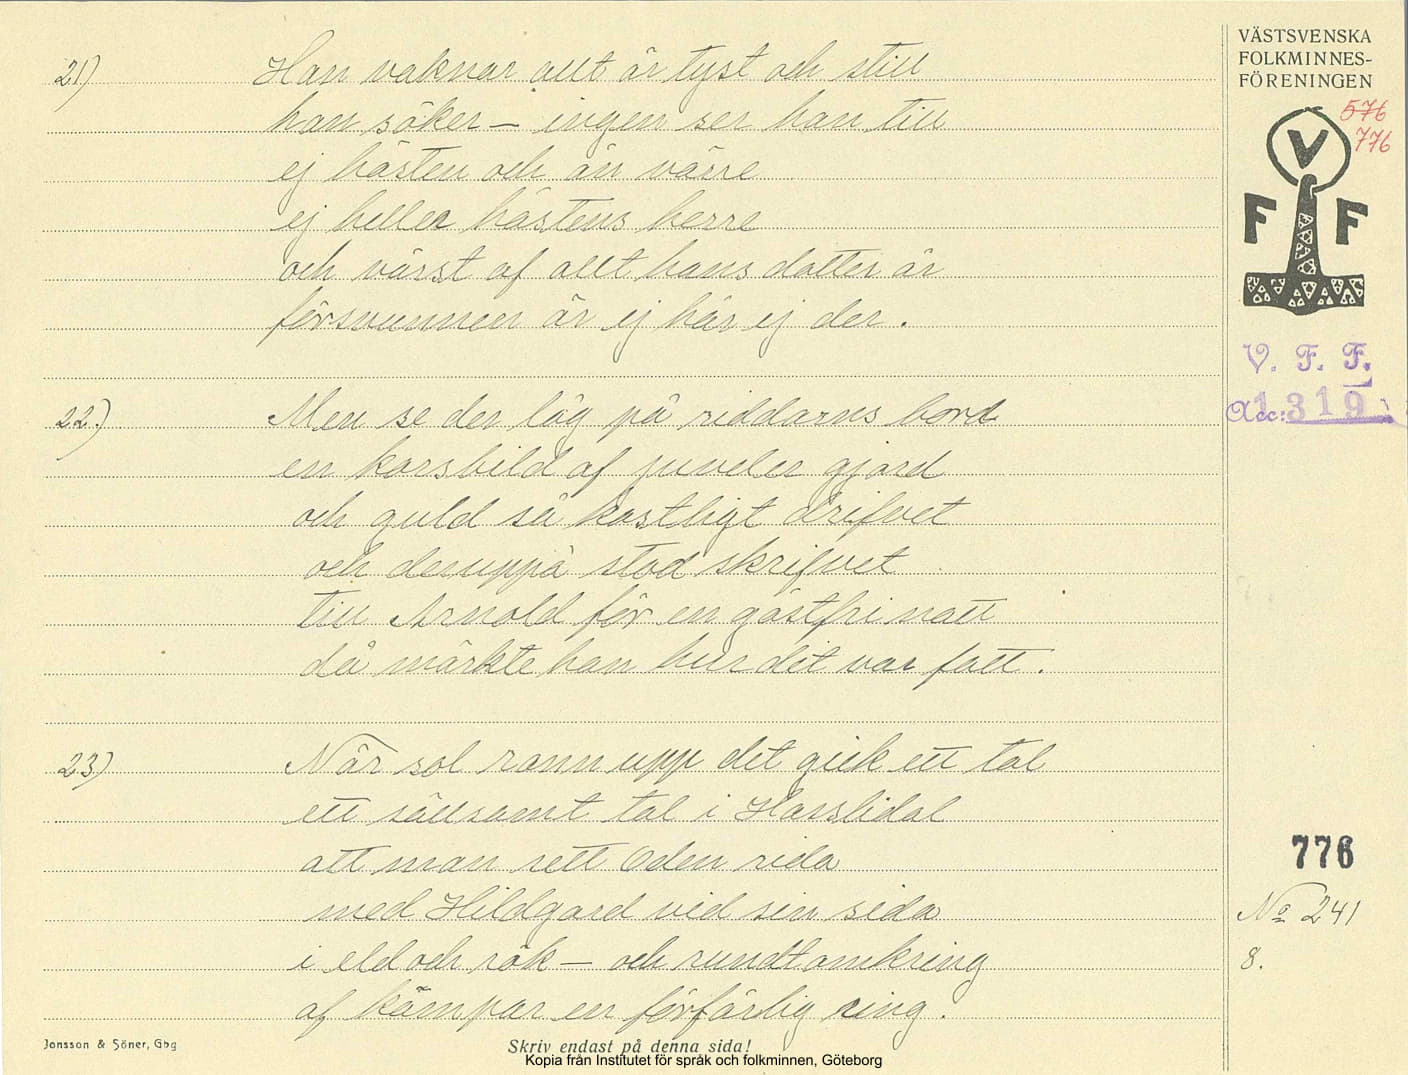 21) Han vaknar allt är tyst och still
han söker – ingen ser han till
ej hästen och än värre
ej heller hästens herre
och värst af allt hans dotter är
försvunnen är ej här ej der.
22.) Men se der låg på riddarns bord
en korsbild af juveler gjord
och guld så kostligt drifvet
och deruppå stod skrifvet
till Arnold för en gästfri natt
då märkte han hur det var fatt.
23) När sol rann upp det gick ett tal
ett sällsamt tal i Hasslidal
att man sett Oden rida
med Hildgard vid sin sida
i eld och rök – och rundt omkring
af kämpar en förfärlig ring.
Jonsson & Söner, Gbg
Skriv endast på denna sida!
Kopia från Institutet för språk och folkminnen, Göteborg
VÄSTSVENSKA
FOLKMINNES-
FÖRENINGEN
576
776
V
F F
V. F. F.
Acc: 1319
776
No 241
8.